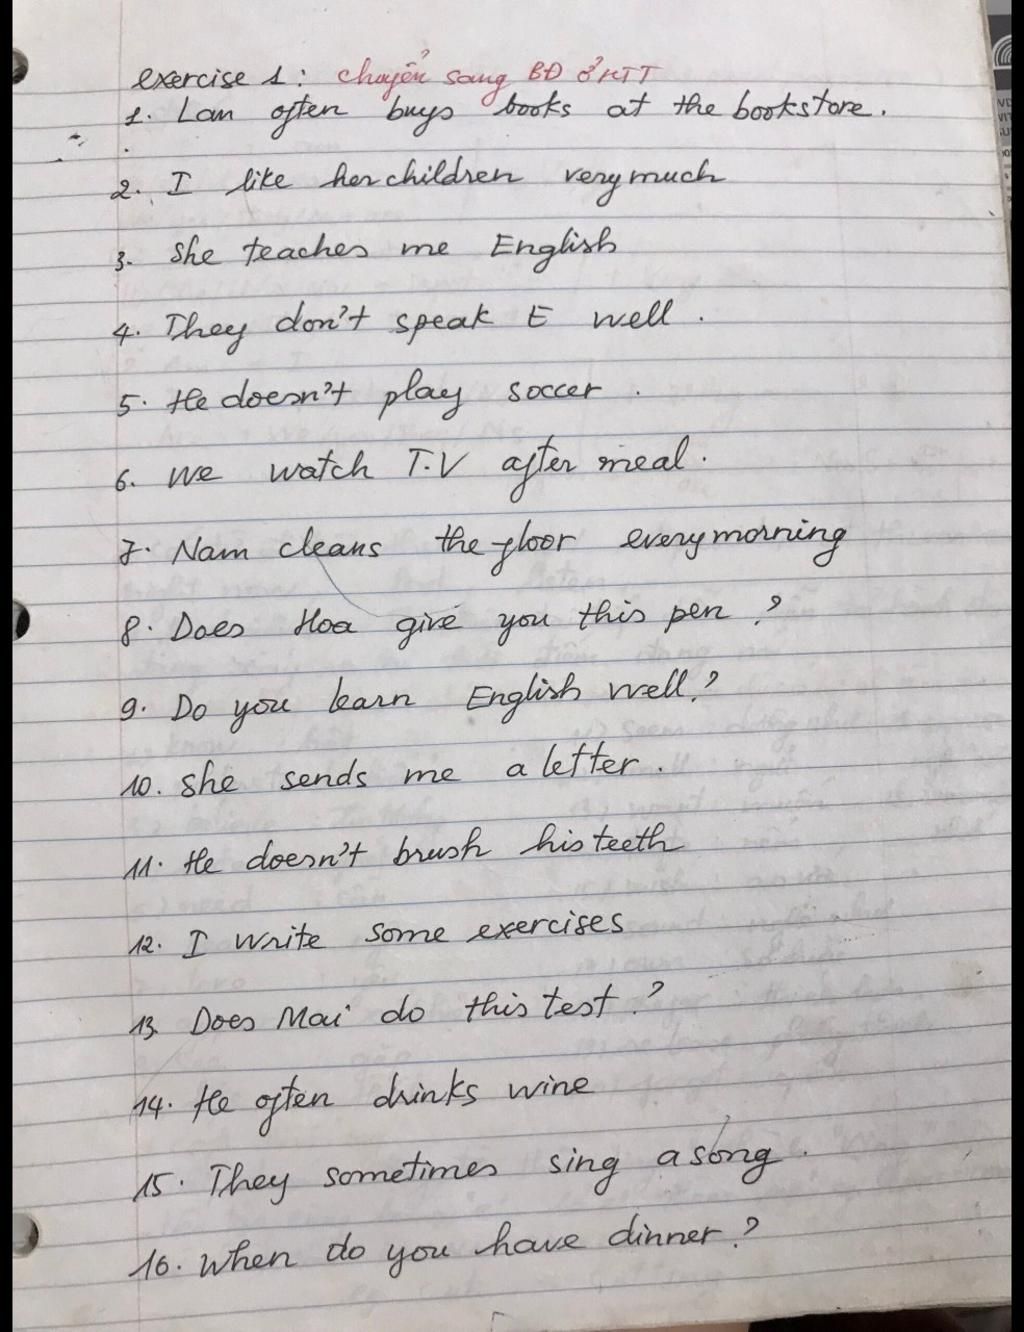 exercise 1: chuyển sang BĐ ở HTT
1. Lan often buys books at the bookstore.
2. I like her children very much
3. She teaches me English
4. They don't speak E well.
5. He doesn't play soccer.
6. We watch T.V after meal.
7. Nam cleans the floor every morning
8. Does Hoa give you this pen?
9. Do you learn English well?
10. she sends me a letter.
11. He doesn't brush his teeth
12. I write some exercises
13. Does Mai do this test?
14. He often drinks wine
15. They sometimes sing a song.
16. When do you have dinner?